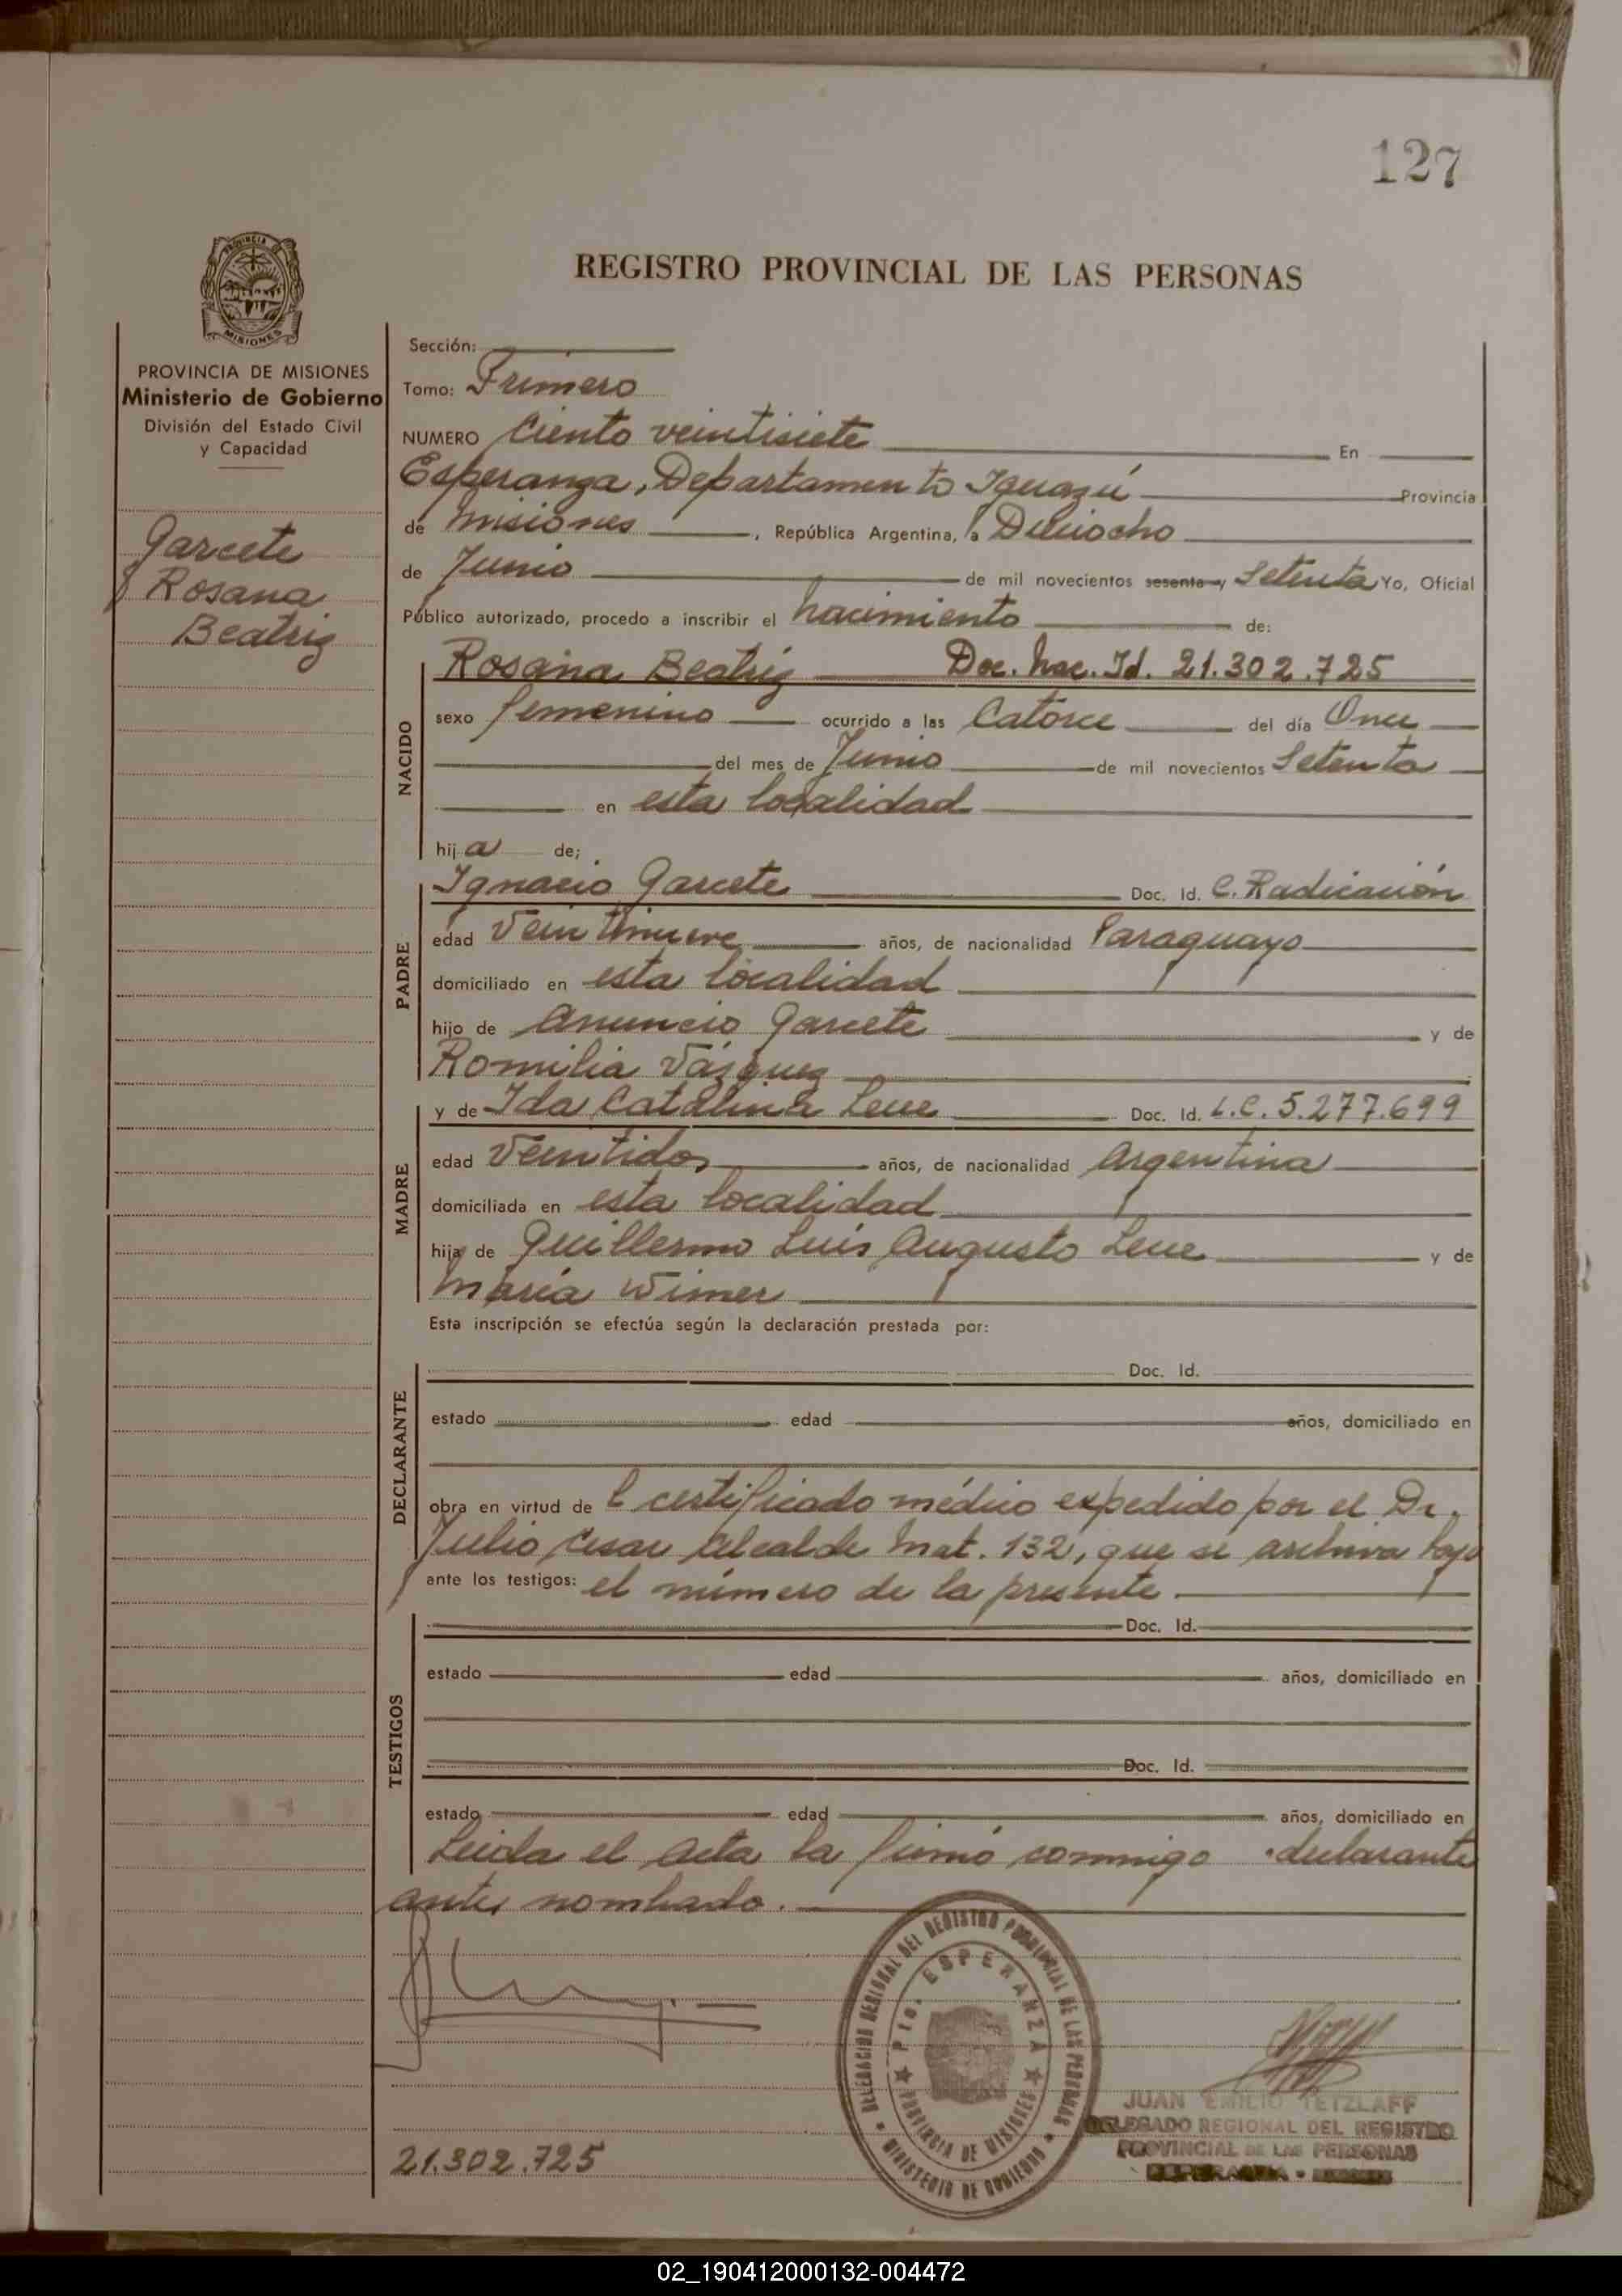 127
REGISTRO PROVINCIAL DE LAS PERSONAS
PROVINCIA DE MISIONES
Ministerio de Gobierno
División del Estado Civil
y Capacidad
Garcete
Rosana
Beatriz
Sección:
Tomo: Primero
NUMERO Ciento veintisiete En
Esperanza, Departamento Iguazú Provincia
de Misiones, República Argentina, a Dieciocho
de Junio de mil novecientos sesenta y Setenta Yo, Oficial
Público autorizado, procedo a inscribir el nacimiento de:
NACIDO
Rosana Beatriz Doc. Nac. Id. 21.302.725
sexo femenino ocurrido a las Catorce del día Once
del mes de Junio de mil novecientos Setenta
en esta localidad
hija de;
PADRE
Ignacio Garcete Doc. Id. C. Radicación
edad Veintinueve años, de nacionalidad Paraguayo
domiciliado en esta localidad
hijo de Anuncio Garcete y de
Romilia Vázquez
MADRE
y de Ida Catalina Leue Doc. Id. L.C. 5.277.699
edad Veintidos años, de nacionalidad Argentina
domiciliada en esta localidad
hija de Guillermo Luis Augusto Leue y de
María Wimer
Esta inscripción se efectúa según la declaración prestada por:
DECLARANTE
Doc. Id.
estado edad años, domiciliado en
obra en virtud de l certificado médico expedido por el Dr.
Julio Cesar Alcalde Mat. 132, que se archiva bajo
ante los testigos: el número de la presente.
TESTIGOS
Doc. Id.
estado edad años, domiciliado en
Doc. Id.
estado edad años, domiciliado en
Leida el acta la firmó conmigo declarante
antes nombrado.
DELEGACION REGIONAL DEL REGISTRO PROVINCIAL DE LAS PERSONAS
Pto. ESPERANZA
PROVINCIA DE MISIONES
MINISTERIO DE GOBIERNO
JUAN EMILIO TETZLAFF
DELEGADO REGIONAL DEL REGISTRO
PROVINCIAL DE LAS PERSONAS
21.302.725
02_190412000132-004472